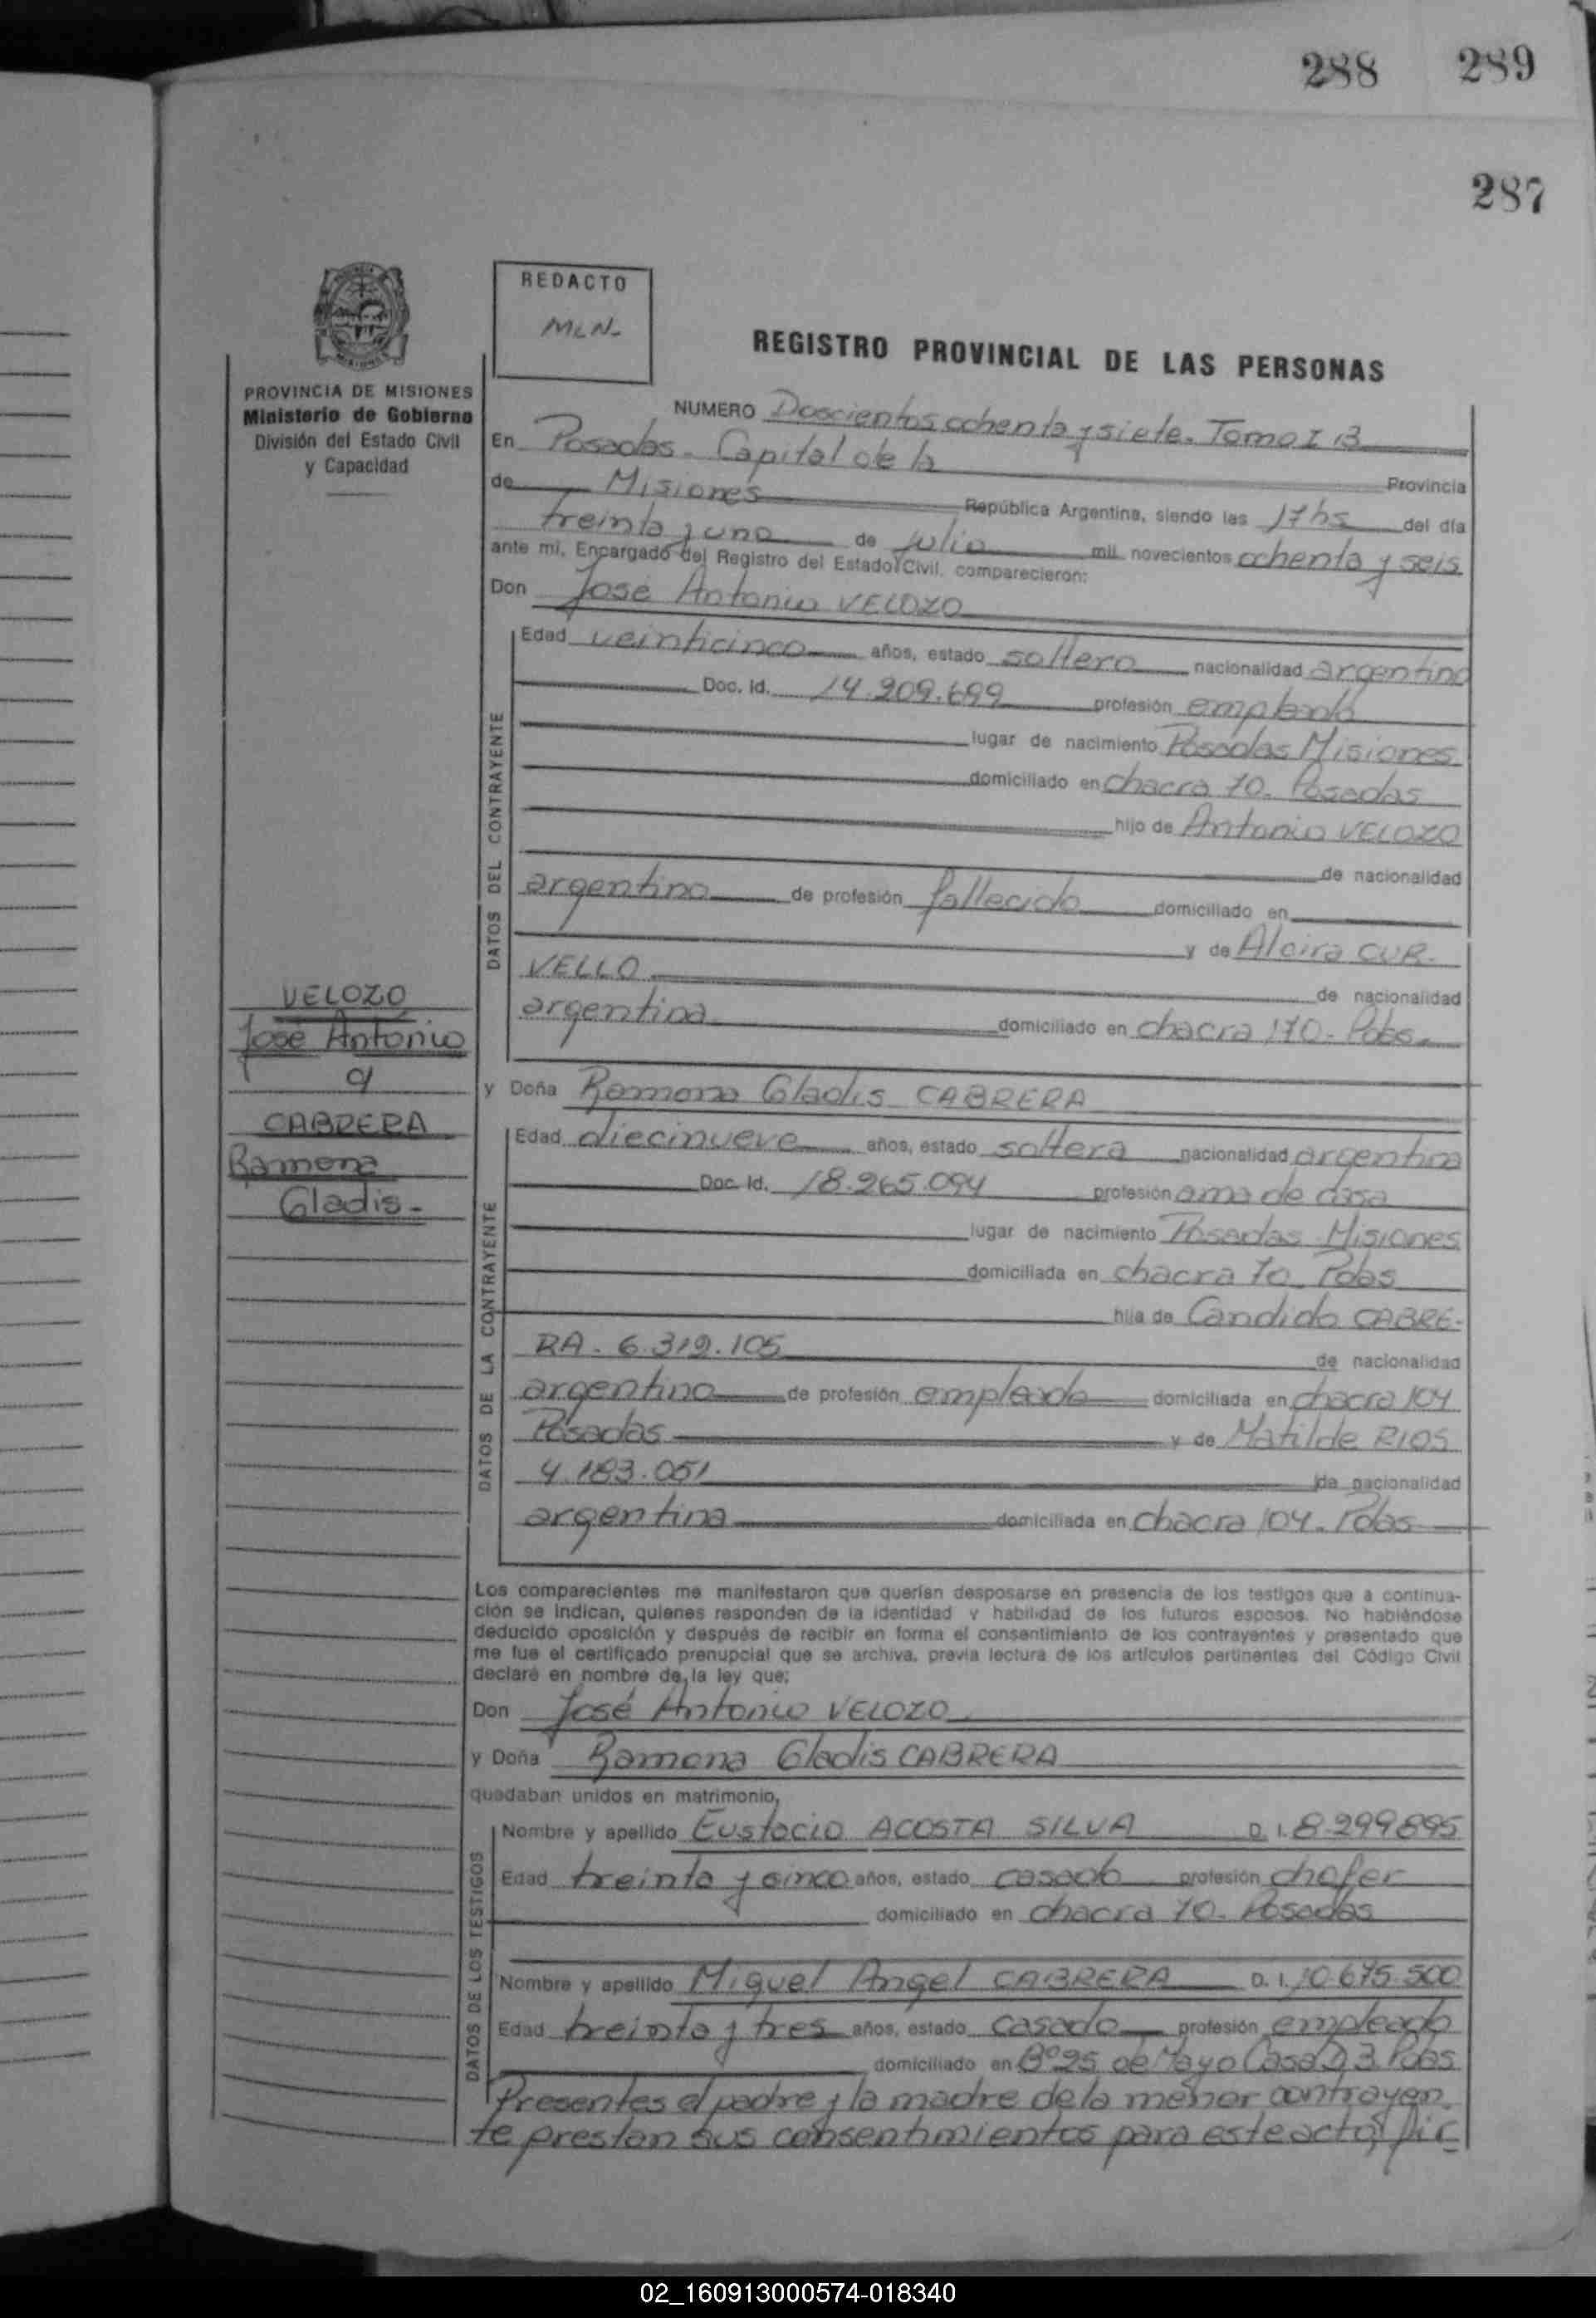 288 289
287
REDACTO
MLN-
REGISTRO PROVINCIAL DE LAS PERSONAS
PROVINCIA DE MISIONES
Ministerio de Gobierno
División del Estado Civil
y Capacidad
NUMERO Doscientos ochenta y siete. Tomo I 13
En Posadas. Capital de la Provincia
de Misiones República Argentina, siendo las 17hs del día
treinta y uno de julio mil novecientos ochenta y seis
ante mi, Encargado del Registro del Estado Civil, comparecieron:
Don José Antonio VELOZO
DATOS DEL CONTRAYENTE
Edad veinticinco años, estado soltero nacionalidad argentino
Doc. Id. 14.209.699 profesión empleado
lugar de nacimiento Posadas Misiones
domiciliado en chacra 70. Posadas
hijo de Antonio VELOZO
de nacionalidad
argentino de profesión fallecido domiciliado en
y de Alcira CUR-
VELLO de nacionalidad
argentina domiciliado en chacra 170. Pdas.
VELOZO
José Antonio
c/
CABRERA
Ramona
Gladis-
y Doña Ramona Gladis CABRERA
DATOS DE LA CONTRAYENTE
Edad diecinueve años, estado soltera nacionalidad argentina
Doc. Id. 18.265.094 profesión ama de casa
lugar de nacimiento Posadas Misiones
domiciliada en chacra 70. Pdas
hija de Candido CABRE-
RA. 6.319.105 de nacionalidad
argentino de profesión empleado domiciliada en chacra 104
Posadas y de Matilde RIOS
4.183.051 de nacionalidad
argentina domiciliada en chacra 104. Pdas
Los comparecientes me manifestaron que querían desposarse en presencia de los testigos que a continua-
ción se indican, quienes responden de la identidad y habilidad de los futuros esposos. No habiéndose
deducido oposición y después de recibir en forma el consentimiento de los contrayentes y presentado que
me fue el certificado prenupcial que se archiva, previa lectura de los artículos pertinentes del Código Civil
declaré en nombre de la ley que:
Don José Antonio VELOZO
y Doña Ramona Gladis CABRERA
quedaban unidos en matrimonio,
DATOS DE LOS TESTIGOS
Nombre y apellido Eustacio ACOSTA SILVA D. I. 8.299895
Edad treinta y cinco años, estado casado profesión chofer
domiciliado en chacra 70. Posadas
Nombre y apellido Miguel Angel CABRERA D. I. 10.675.500
Edad treinta y tres años, estado casado profesión empleado
domiciliado en Bº25 de Mayo Casa 3. Pdas
Presentes el padre y la madre de la menor contrayen.
te prestan sus consentimientos para este acto,
02_160913000574-018340